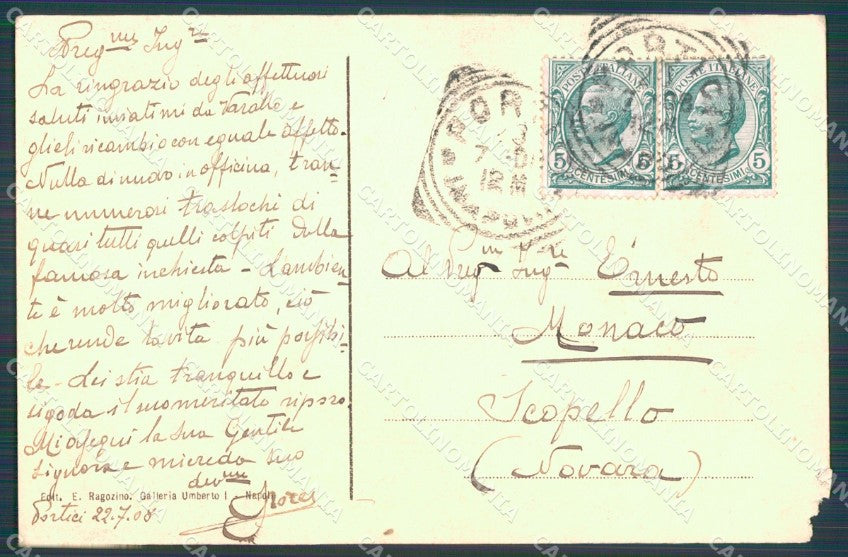 Preg.mo Ing.re
La ringrazio degli affettuosi
saluti inviatimi da Varallo e
glieli ricambio con eguale affetto.
Nulla di nuovo in officina, tran-
ne numerosi traslochi di
quasi tutti quelli colpiti dalla
famosa inchiesta - L'ambien-
te è molto migliorato, ciò
che rende la vita più possibi-
le - Lei stia tranquillo e
si goda il suo meritato riposo.
Mi ossequi la sua Gentile
Signora e mi creda suo
dev.mo
Edit. E. Ragozino. Galleria Umberto I - Napoli
Portici 22.7.08
PORTICI
POSTE ITALIANE
5 5
CENTESIMI
POSTE ITALIANE
5 5
CENTESIMI
Al Preg.m Ing.re Ernesto
Monaco
Scopello
(Novara)
CARTOLINOMANIA